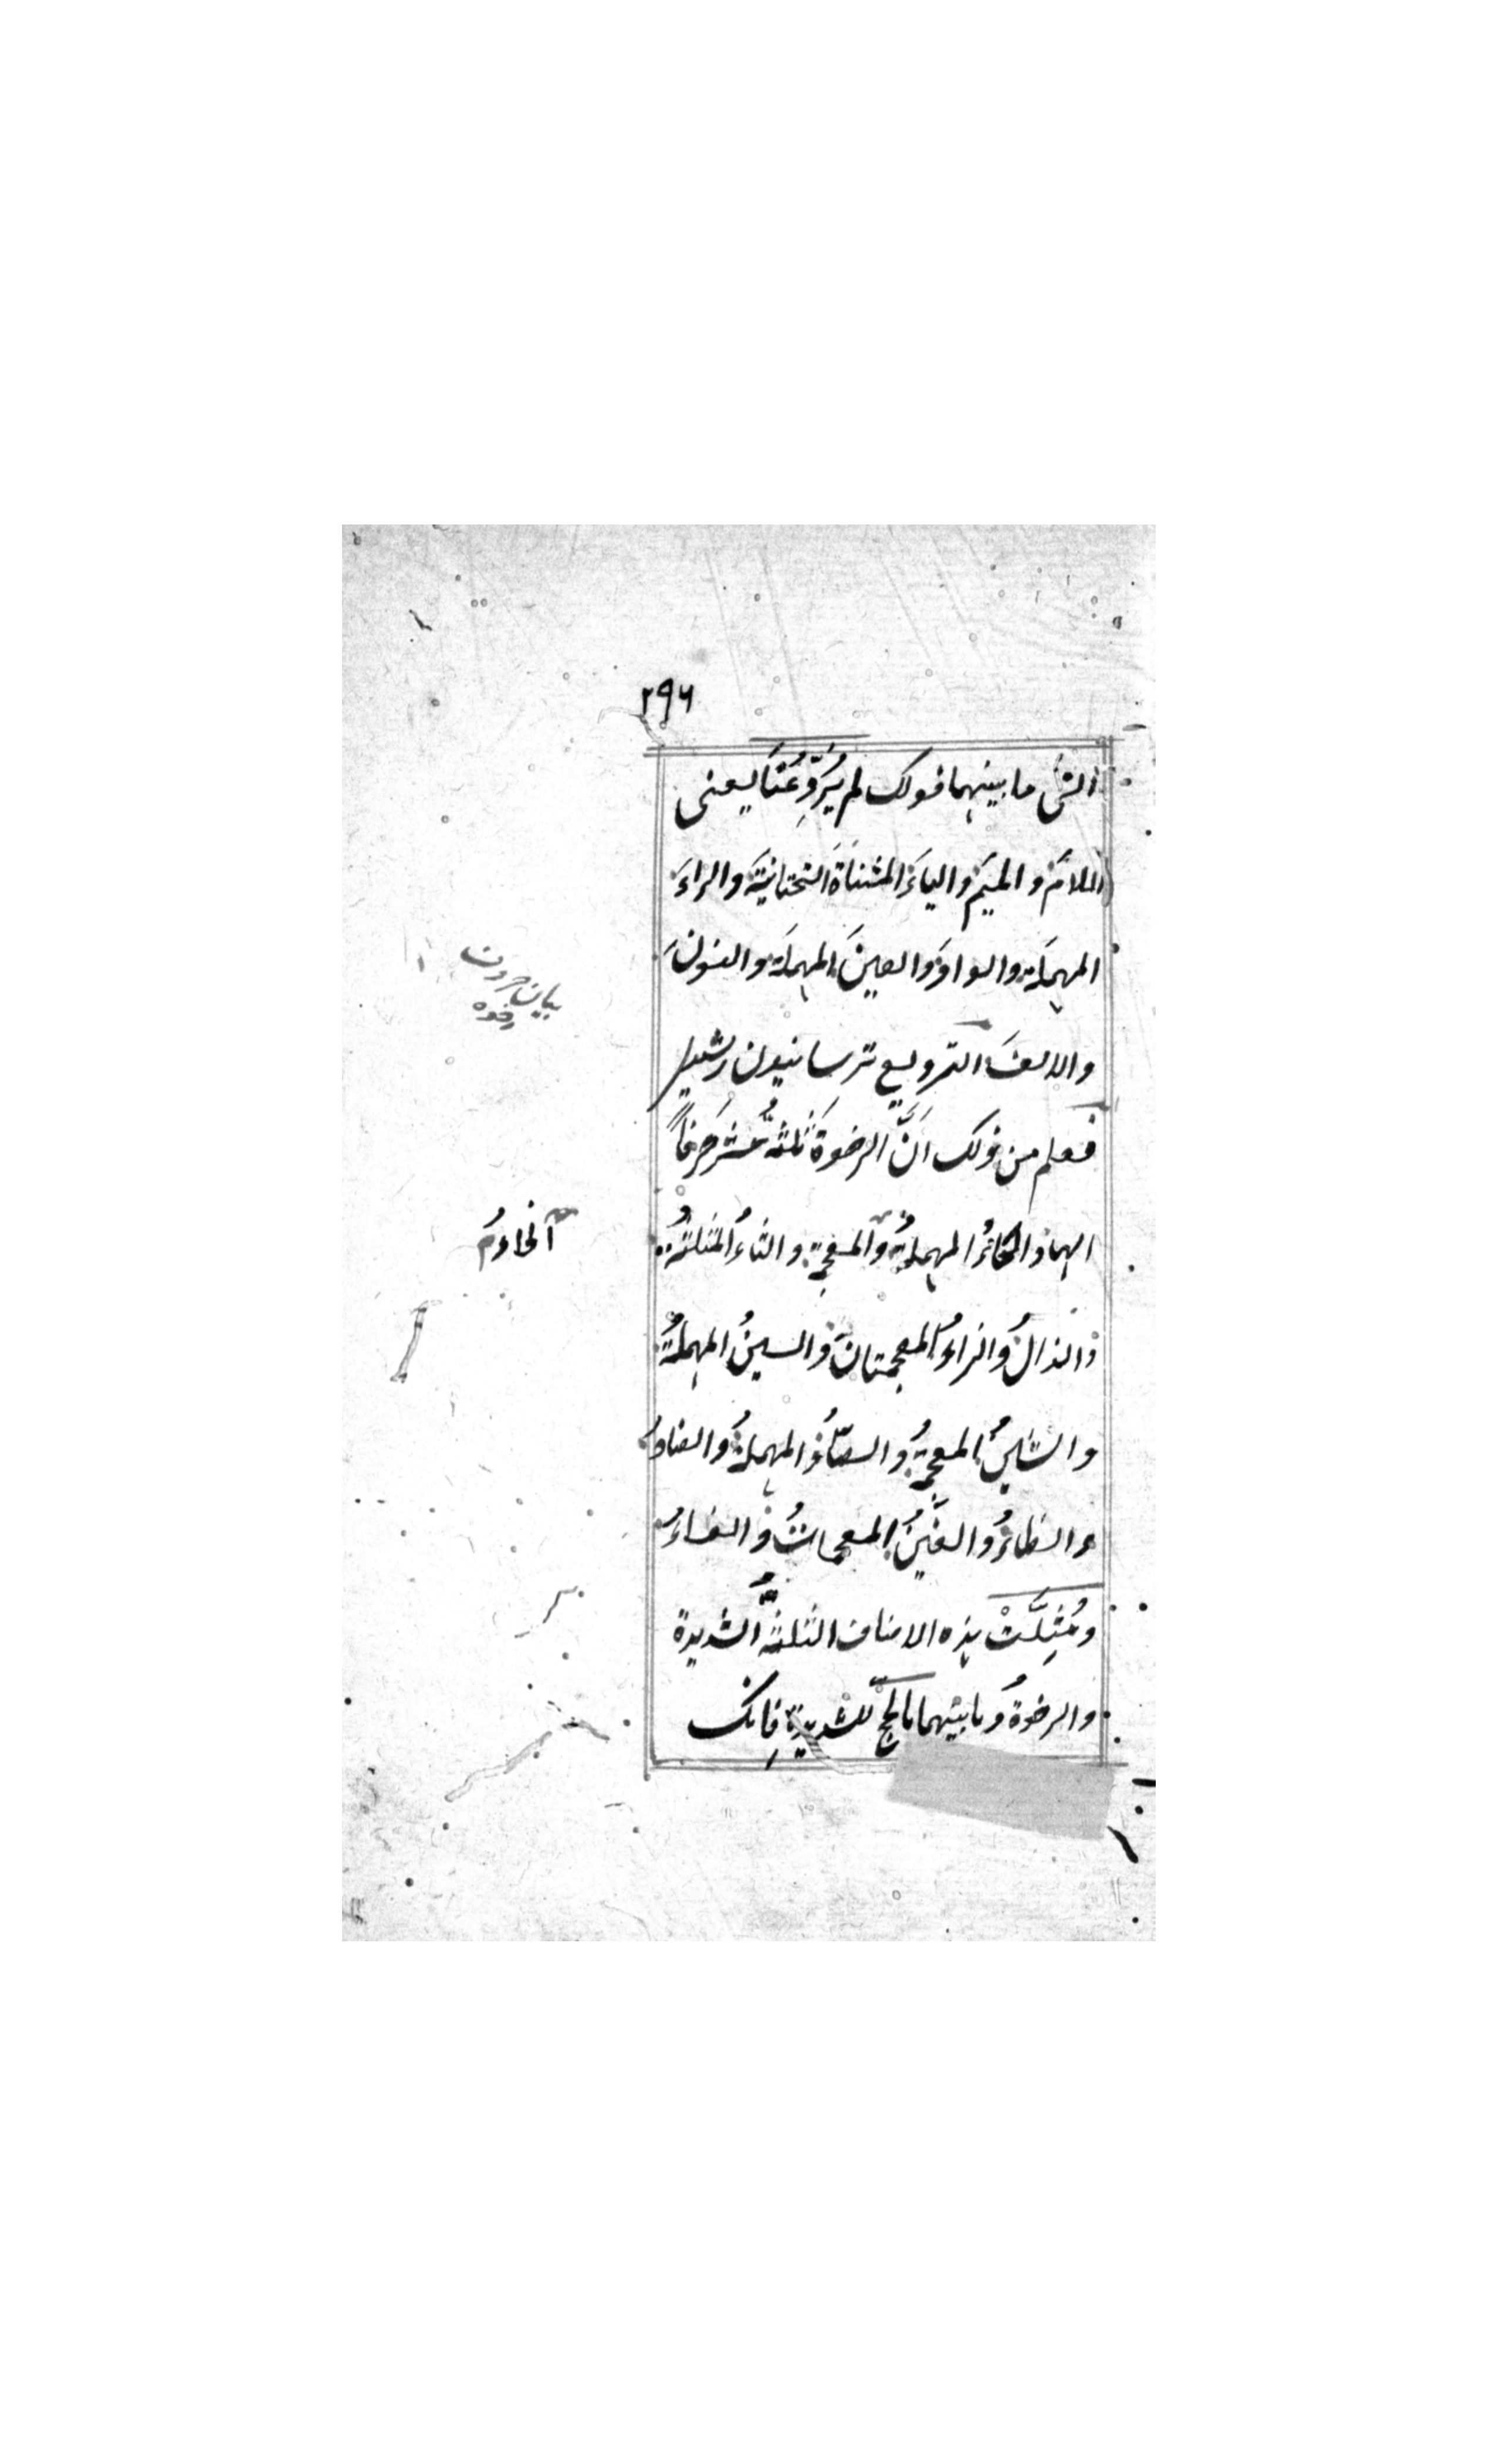 ٢٩٦
التى ما بينهما قولك لم يُرَوِّعُنَا يعنى
اللامَ والميمَ والياءَ المثناةَ التحتانيةَ والراءَ
المهملةَ والواوَ والعينَ المهملةَ والنونَ
والالفَ الترويع ترسانيدن
فعلم من ذلك اَنَّ الرخوةَ ثلثةُ عشر حرفاً
الهاء والحاءُ المهملةُ والمعجمة والثاءُ المثلثةُ
والذالُ والزاءُ المعجمتان والسينُ المهملةُ
والشينُ المعجمةُ والصادُ المهملةُ والضادُ
والظاءُ والغينُ المعجماتُ والفاءُ
ومُثِّلَتْ هذه الاصناف الثلثةُ الشديدة
والرخوةُ وما بينهما بالحج للشديدة فانك
بيان حروف
رخوه
الخاءُ